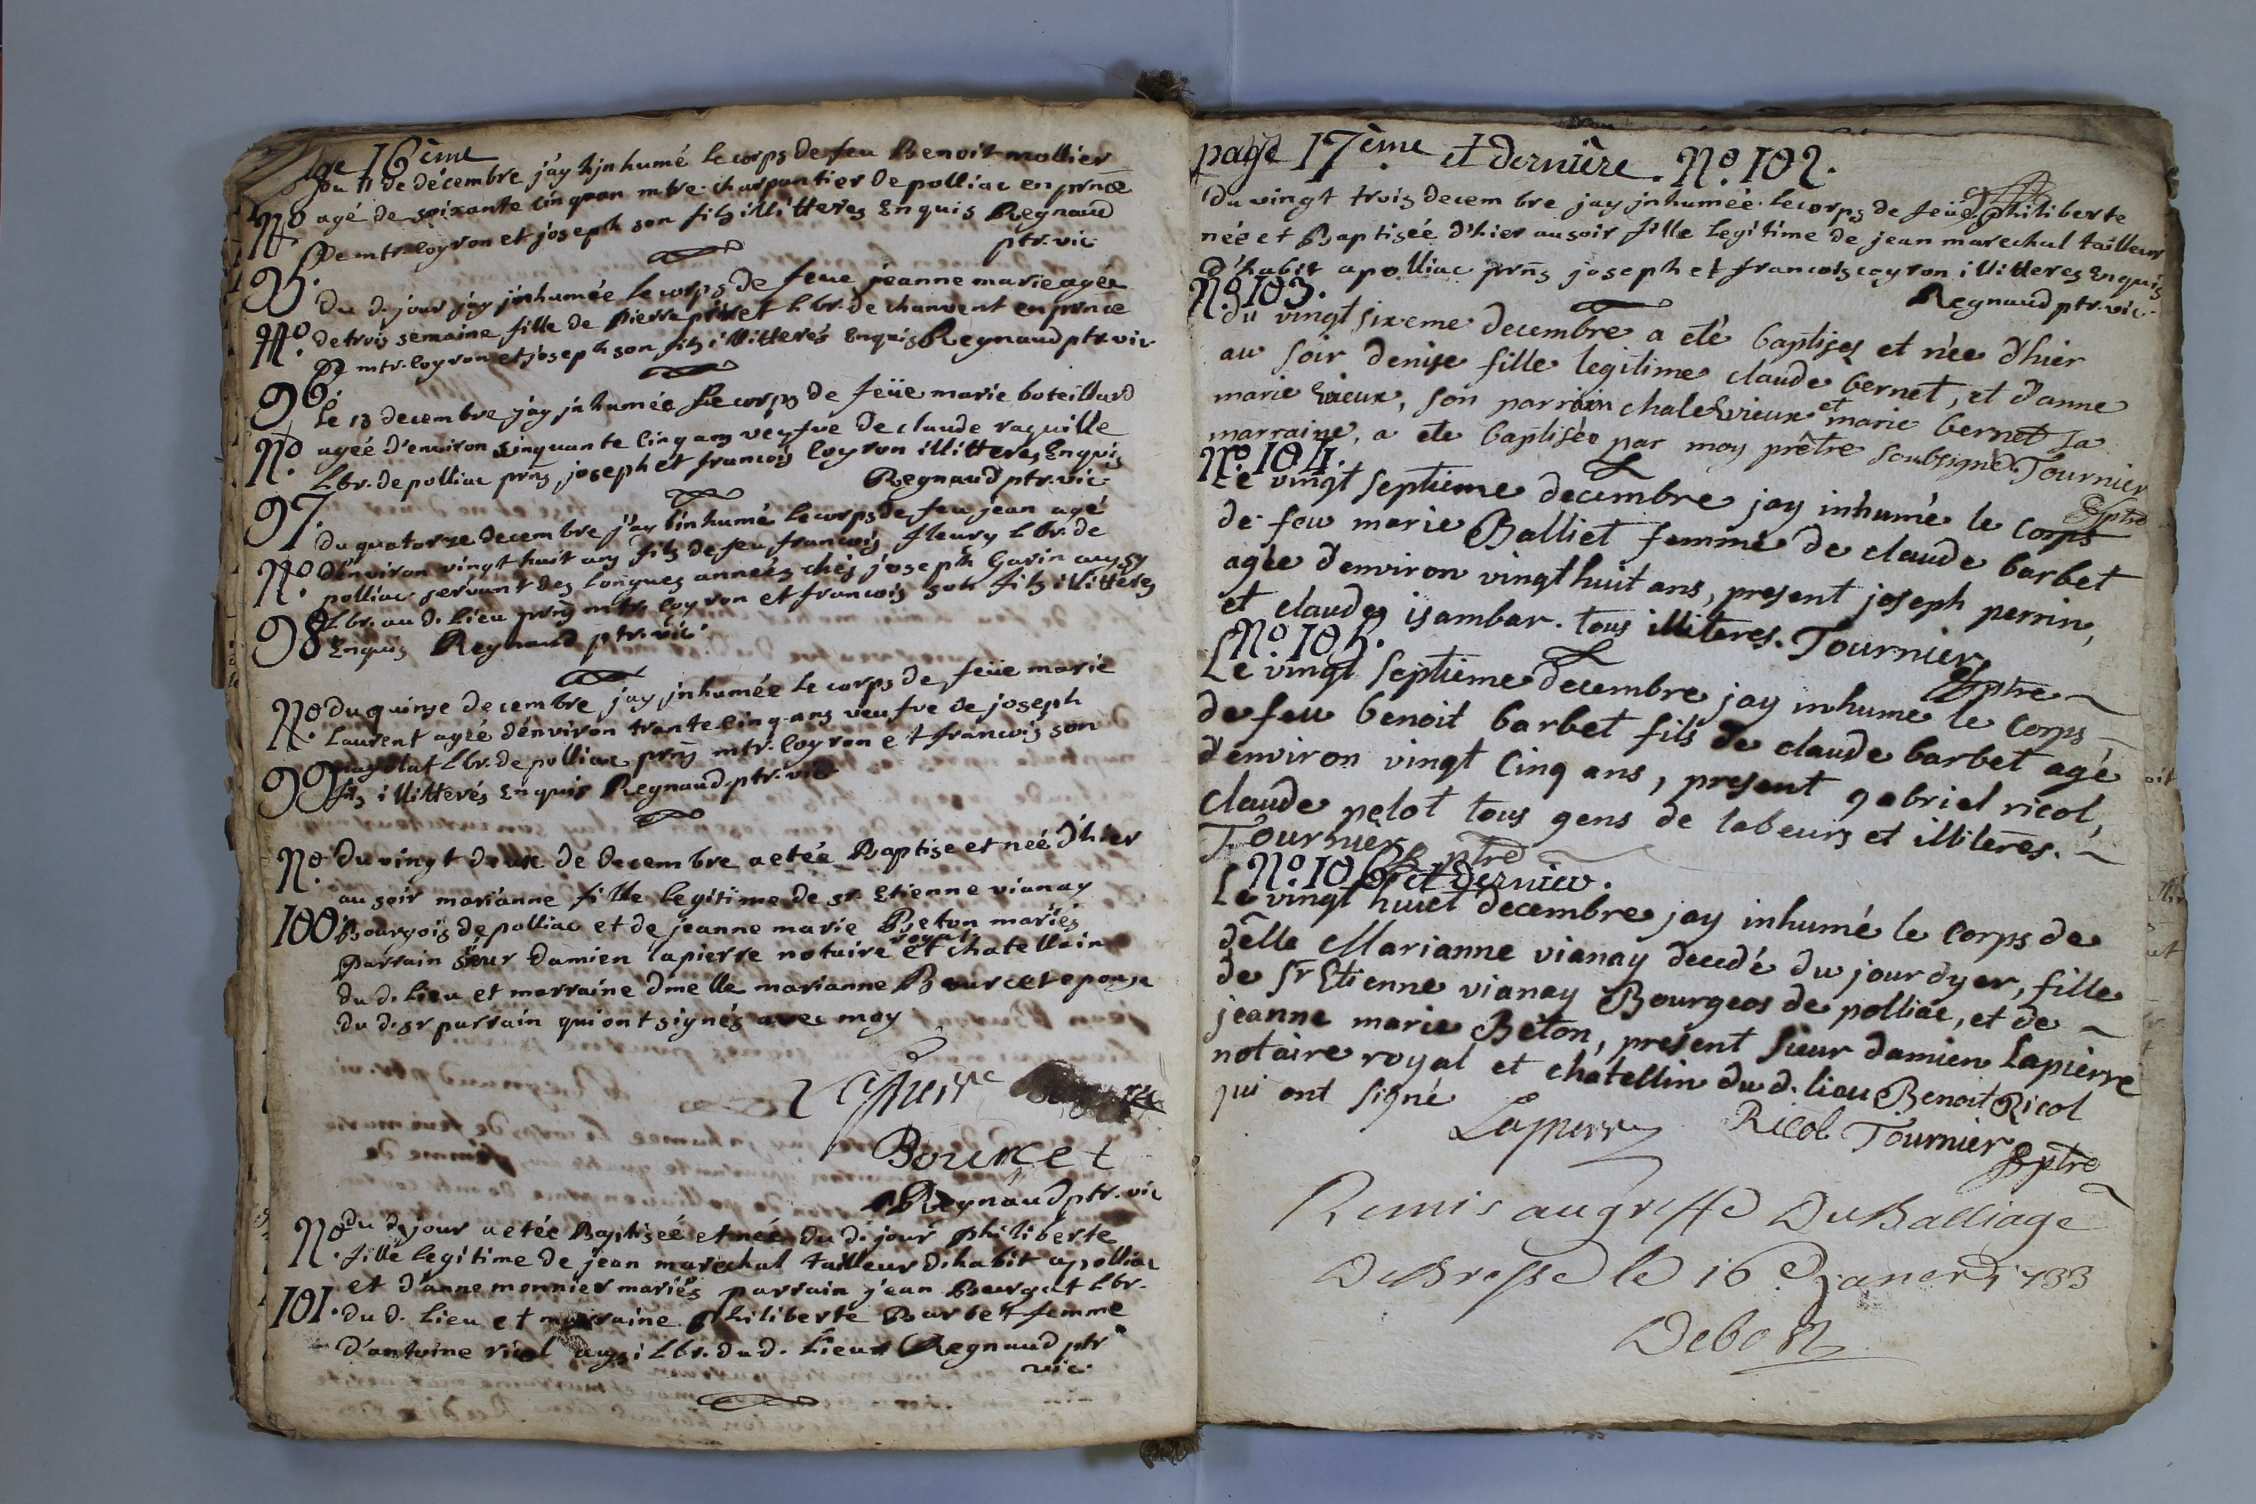 page 16ème
Du 11 de décembre j'ay inhumé le corps de feu Benoit mollier
N.o 95. agé de soixante cinq an mtre. charpantier de polliac en prnce
De mtr. coyron et joseph son fils illitteres Enquis Regnaud
ptr. vic
du d. jour j'ay jnhumée le corps de feue jeanne marie agée
N.o 96. de trois semaine fille de pierre Lbr. de chanvent en prnce
De mtr. coyron et joseph son fils illitterés Enquis Regnaud ptr. vic
Le 13 decembre j'ay jnhumée le corps de feüe marie boteillard
N.o 97. agéé d'environ cinquante cinq ans veufve de claude raquille
Lbr. de polliac prns joseph et francois coyron illitteres Enquis
Regnaud ptr. vic
du quatorze decembre j'ay inhumé le corps de feu jean agé
N.o 98 d'environ vingt huit ans fils de feu francois fleury Lbr. de
polliac servant des longues années chés joseph Garin aussy
Lbr. au d. Lieu prns mtr. coyron et francois son fils illitteres
Enquis Regnaud ptr. vic
N.o 99 du quinze decembre jay jnhumée le corps de feüe marie
Laurent agéé d'environ trante-cinq-ans veufve de joseph
Lbr. de polliac prns mtr. coyron et francois son
fils illitterés Enquis Regnaud ptr. vic
N.o 100 du vingt deux de decembre a etée Baptise et neé d'hier
au soir marianne fille legitime de sr. Etienne vianay
Bourgois de polliac et de jeanne marie Beton mariés
parrain sieur damien lapierre notaire royal et chatellain
du d. Lieu et marraine dmelle marianne Bourcet epouse
du d. sr parrain qui ont signés avec moy
Lapierre
Bource t
Regnaud ptr. vic
N.o 101. du d. jour a etée Baptiseé et née du d. jour philiberte
fille legitime de jean marechal tailleur d'habit a polliac
et d'anne monnier mariés parrain jean Lbr.
du d. Lieu et marraine philiberte Barbet femme
d'antoine ricol aussi Lbr. du d. Lieu Regnaud ptr
vic.
page 17ème et dernière. N.o 102.
du vingt trois decem bre jay jnhumée le corps de feüe philiberte
née et Baptisée d'hier au soir fille legitime de jean marechal tailleur
d'habit a polliac prns joseph et francois coyron illitteres Enquis
Regnaud ptr. vic.
N.o 103.
du vingt sixeme decembre a eté baptisés et née d'hier
au soir denise fille legitime claude bernet, et d'anne
marie vieux, son parrain vieux et marie bernet sa
marraine, a ete baptisée par moy prêtre soubsigné. Tournier
ptre
N.o 104.
Le vingt septieme decembre jay inhumé le corps
de feu marie Balliet femme de claude barbet
agée d'environ vingt huit ans, present joseph perrin,
et claude isambar. tous illiteres. Tournier
ptre
N.o 105.
Le vingt septieme decembre jay inhume le corps
de feu benoit barbet fils de claude barbet agé
d'environ vingt cinq ans, present gabriel ricol,
claude pelot tous gens de labeurs et illiteres.
Tournier ptre
N.o 106 et dernier.
Le vingt huiet decembre jay inhumé le corps de
delle Marianne vianay decedé du jour dyer, fille
de Sr Etienne vianay Bourgeos de polliac, et de
jeanne marie Béton, present sieur damien Lapierre
notaire royal et chatellin du d. lieu Benoit Ricol
qui ont signé
Lapierre Ricol Tournier ptre
Remis au greffe Du Balliage
De Bresse le 16e janer 1733
Debost